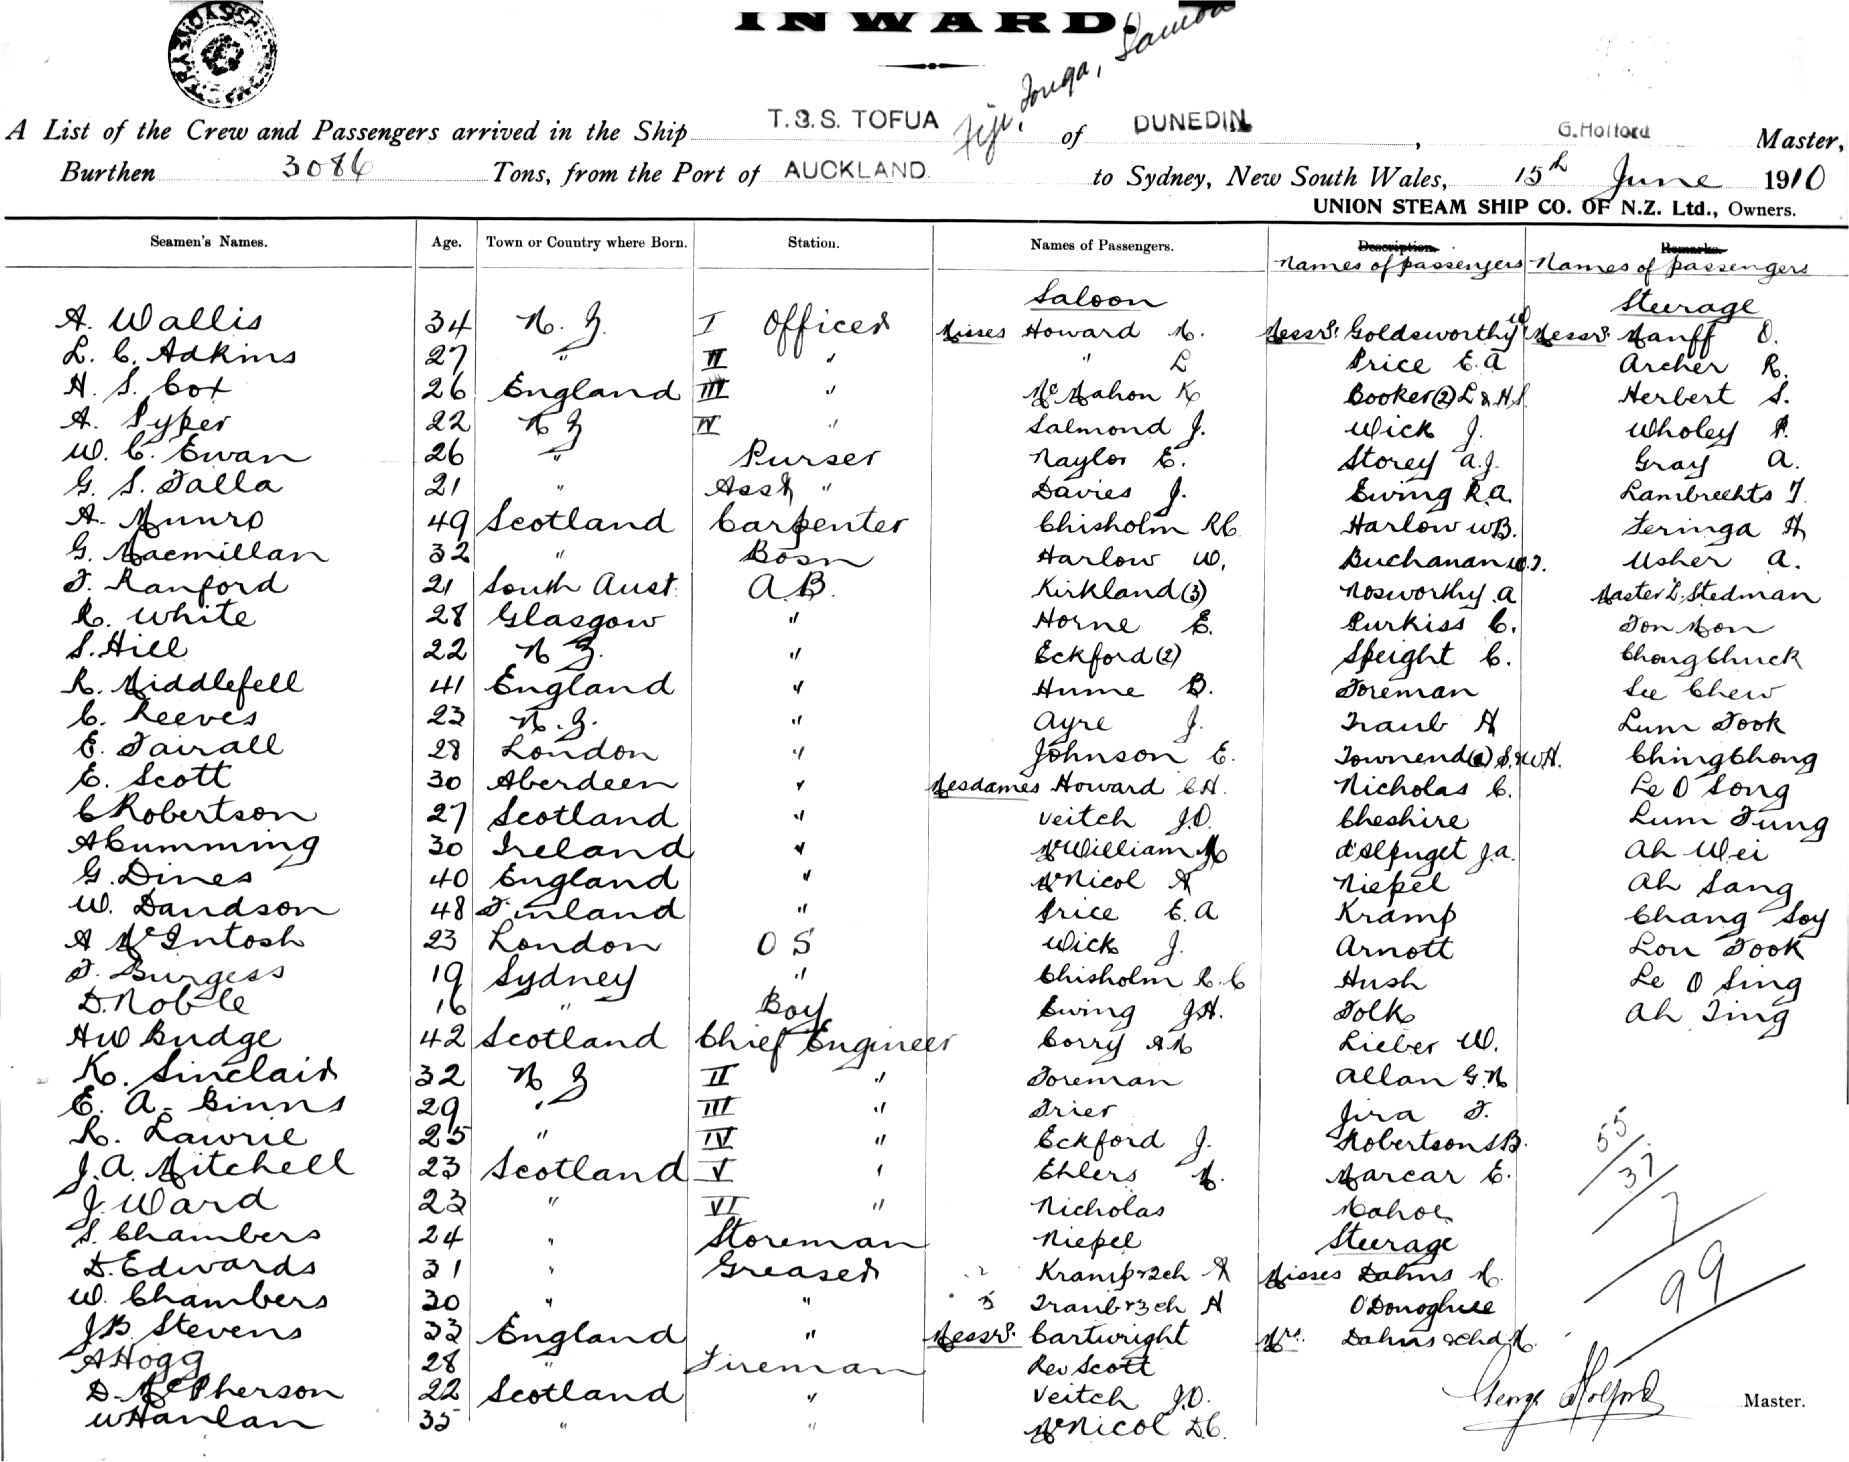 INWARD.
Fiji, Tonga, Samoa
A List of the Crew and Passengers arrived in the Ship T.S.S. TOFUA of DUNEDIN, G. Holford Master,
Burthen 3086 Tons, from the Port of AUCKLAND to Sydney, New South Wales, 15th June 1910
UNION STEAM SHIP CO. OF N.Z. Ltd., Owners.
Seamen's Names. Age. Town or Country where Born. Station. Names of Passengers. Description. Remarks.
Names of passengers Names of passengers
Saloon Steerage
A. Wallis 34 N. Z. I Officer Misses Howard M. Messrs. Goldsworthy W Messrs. Manff O.
L. C. Adkins 27 " II " " L Price E. A Archer R.
H. S. Cox 26 England III " McMahon K Booker (2) L & H.S. Herbert S.
A. Syper 22 N Z IV " Salmond J. Wick J. Wholey P.
W. C. Ewan 26 " Purser Naylor E. Storey A.J. Gray A.
G. S. Talla 21 " Asst " Davies J. Ewing R.A. Lambrechts T.
A. Munro 49 Scotland Carpenter Chisholm RC Harlow W.B. Feringa H
G. Macmillan 32 " Bosn Harlow W. Buchanan W.J. Usher A.
F. Ranford 21 South Aust. A B. Kirkland (3) Nosworthy A Master L. Stedman
R. White 28 Glasgow " Horne E. Purkiss C. Fon Mon
S. Hill 22 N Z. " Eckford (2) Speight C. Chong Chuck
R. Middlefell 41 England " Hume B. Foreman See Chew
C. Reeves 23 N. Z. " Ayre J. Traub H Lum Fook
E. Fairall 28 London " Johnson E. Townend (2) S. & W.H. Ching Chong
E. Scott 30 Aberdeen " Mesdames Howard C.H. Nicholas C. Le O Song
C Robertson 27 Scotland " Veitch J.D. Cheshire Lum Fung
A Cumming 30 Ireland " McWilliam M d'Alpuget J.A. Ah Wei
G. Dines 40 England " McNicol A Niepel Ah Sang
W. Davidson 48 Finland " Price E. A Kramp Chang Soy
A McIntosh 23 London O S Wick J. Arnott Lou Fook
F. Burgess 19 Sydney " Chisholm R. C Hush Le O Sing
D. Noble 16 " Boy Ewing J.H. Folk Ah Ting
HW Budge 42 Scotland Chief Engineer Corry A M Lieber W.
K. Sinclair 32 N Z II " Foreman Allan G. N
E. A. Binns 29 " III " Frier Jira F.
R. Lawrie 25 " IV " Eckford J. Robertson S.B.
J. A. Mitchell 23 Scotland V " Ehlers M. Marcar E.
J. Ward 23 " VI " Nicholas Mahoe
S. Chambers 24 " Storeman Niepel Steerage
D. Edwards 31 " Greaser Kramp & 2 ch A Misses Dahms M.
W. Chambers 30 " " Traub & 3 ch H O'Donoghue
J B. Stevens 33 England " Messrs. Cartwright Mrs. Dahms & chd M.
A Hogg 28 " Fireman Rev Scott
D. McPherson 22 Scotland " Veitch J.D.
W Hanlan 35 " " McNicol D.C.
55
37
7
99
George Holford Master.